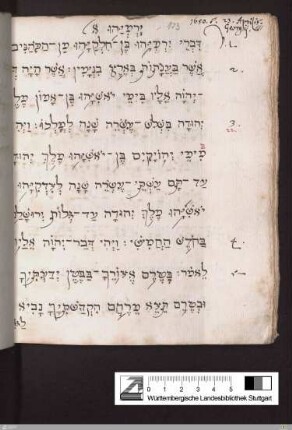 ירמיהו א
103
1650. 6. 23. Aprilis.
דברי ירמיהו בן־חלקיהו מן־הכהנים
1.
אשר בענתות בארץ בנימין׃ אשר היה ד
2.
יהוה אליו בימי יאשיהו בן־אמון מלך
יהודה בשלש־עשרה שנה למלכו׃ ויהי
3.
בימי יהויקים בן־יאשיהו מלך יהוד
עד־תם עשתי־עשרה שנה לצדקיהו
יאשיהו מלך יהודה עד־גלות ירושל
בחדש החמישי׃ ויהי דבר־יהוה אלי
4.
לאמר׃ בטרם אצורך בבטן ידעתיך
5
ובטרם תצא מרחם הקדשתיך נביא
0 1 2 3 4 5
Württembergische Landesbibliothek Stuttgart